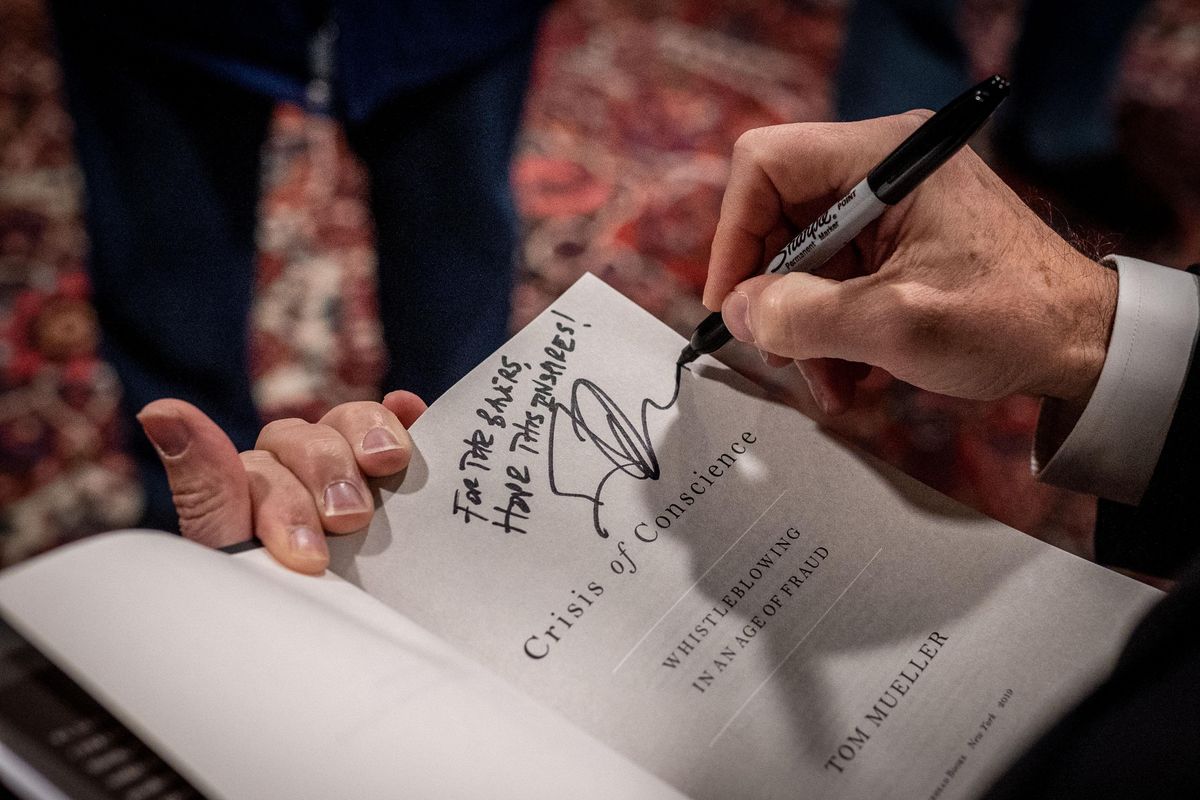 FOR THE BAKERS,
HOPE THIS INSPIRES!
Crisis of Conscience
WHISTLEBLOWING
IN AN AGE OF FRAUD
TOM MUELLER
Books New York 2019
Sharpie®
POINT
Permanent Marker